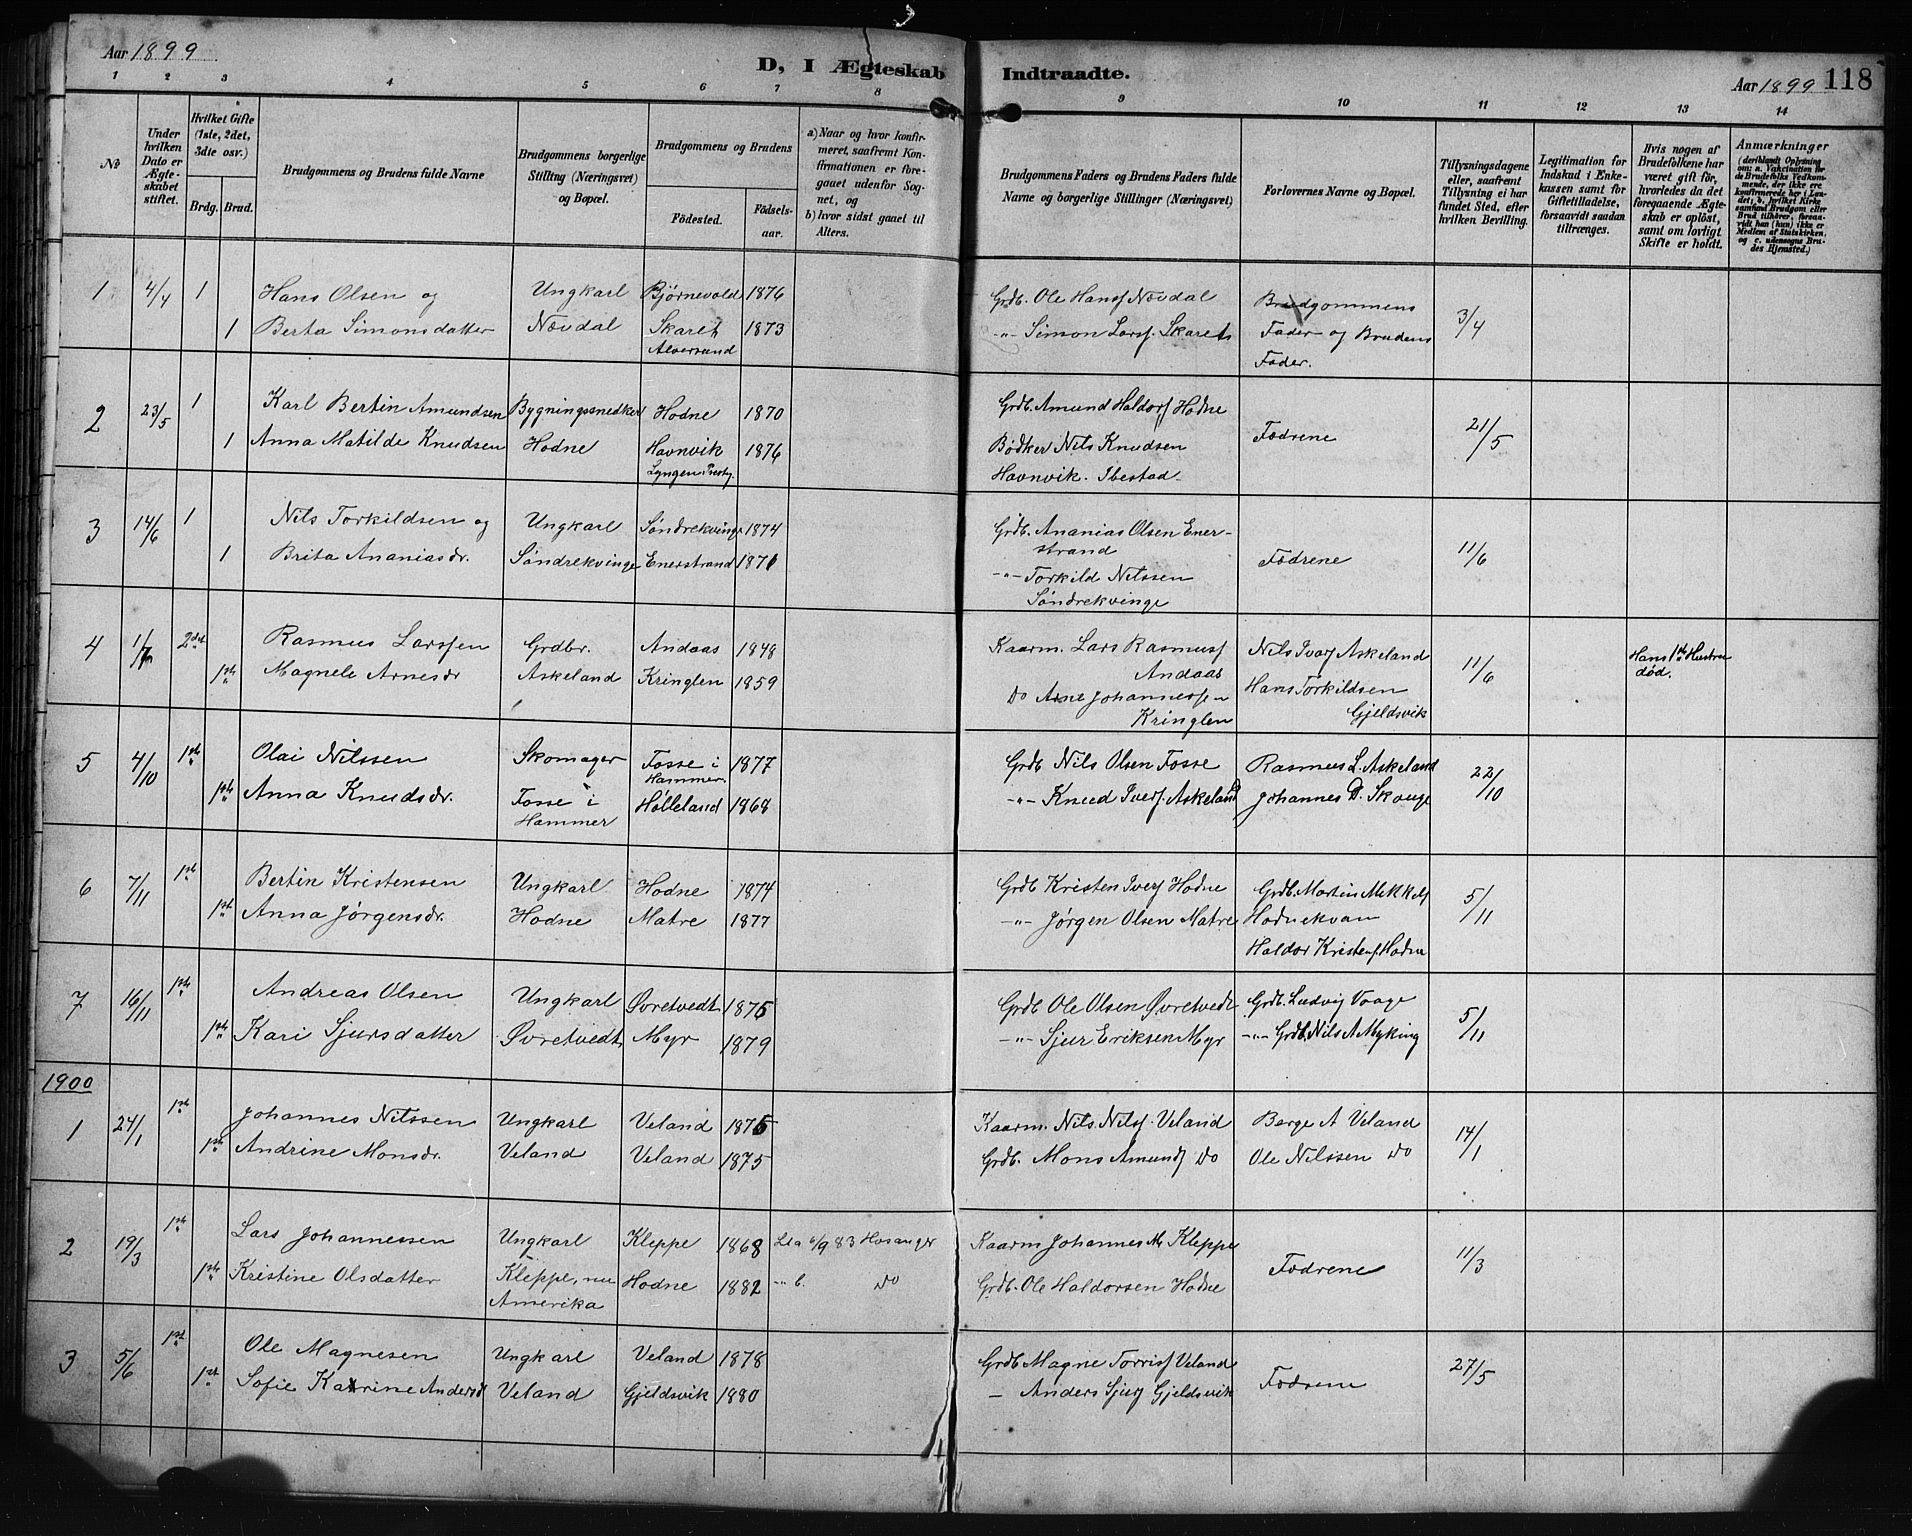 Aar 1899
D, I Ægteskab Indtraadte.
Aar 1899 118
1 2 3 4 5 6 7 8 9 10 11 12 13 14
No
Under hvilken Dato er Ægteskabet stiftet.
Hvilket Gifte (1ste, 2det, 3die osv.)
Brdg. Brud.
Brudgommens og Brudens fulde Navne
Brudgommens borgerlige Stilling (Næringsvei) og Bopæl.
Brudgommens og Brudens
Fødested. Fødselsaar.
a) Naar og hvor konfirmeret, saafremt Konfirmationen er foregaaet udenfor Sognet, og
b) hvor sidst gaaet til Alters.
Brudgommens Faders og Brudens Faders fulde Navne og borgerlige Stillinger (Næringsvei)
Forlovernes Navne og Bopæl.
Tillysningsdagene eller, saafremt Tillysning ei har fundet Sted, efter hvilken Bevilling.
Legitimation for Indskud i Enkekassen samt for Giftetilladelse, forsaavidt saadan tiltrænges.
Hvis nogen af Brudefolkene har været gift før, hvorledes da det foregaaende Ægteskab er opløst, samt om lovligt Skifte er holdt.
Anmærkninger
1 4/4 1 Hans Olsen og Ungkarl Bjørnevold 1876 Grdb. Ole Hanss Nøvdal Brudgommens 3/4
1 Berta Simonsdatter Nøvdal Skaret 1873 -"- Simon Larss. Skaret Fader og Brudens
Alversund Fader.
2 23/5 1 Karl Bertin Amundsen Bygningssnedker Hodne 1870 Grdb. Amund Haldors Hodne 21/5
1 Anna Matilde Knudsen Hodne Havnvik 1876 Bødker Nils Knudsen Fædrene
Lyngen Prestg. Havnvik. Ibestad
3 14/6 1 Nils Torkildsen og Ungkarl Søndrekvinge 1874 Grdb. Ananias Olsen Ener-
strand
1 Brita Ananiasdr. Søndrekvinge Enerstrand 1871 -"- Torkild Nilssen Fædrene 11/6
Søndrekvinge
4 1/7 2det Rasmus Larssen Grdbr. Andaas 1848 Kaarm. Lars Rasmuss Nils Ivars Askeland 11/6 Hans 1ste Hustru
Andaas død.
1ste Magnele Arnesdr Askeland Kringlen 1859 Do Arne Johannessen Hans Torkildsen
Kringlen Gjeldsvik
5 4/10 1ste Olai Nilssen Skomager Fosse i 1877 Grdb Nils Olsen Fosse Rasmus L. Askeland 22/10
Hammer.
1ste Anna Knudsdr. Fosse i Hølleland 1868 -"- Knud Ivers. Askeland Johannes D. Skauge
Hammer
6 7/11 1ste Bertin Kristensen Ungkarl Hodne 1874 Grdb Kristen Ivers Hodne Grdb. Martin Mikkels 5/11
1ste Anna Jørgensdr. Hodne Matre 1877 -"- Jørgen Olsen Matre Hodnekvam
Haldor Kristens. Hodne
7 16/11 1ste Andreas Olsen Ungkarl Øvretvedt 1875 Grdb Ole Olsen Øvretvedt Grdb. Ludvig Vaage 5/11
1ste Kari Sjursdatter Øvretvedt Myr 1879 -"- Sjur Eriksen Myr -"- Grdb. Nils A Myking
1900
1 24/1 1ste Johannes Nilssen Ungkarl Veland 1875 Kaarm. Nils Nilss. Veland Berge A Veland 14/1
1ste Andrine Monsdr. Veland Veland 1875 Grdb. Mons Amunds Do Ole Nilssen Do
2 19/3 1ste Lars Johannessen Ungkarl Kleppe 1868 Lit a 6/9 83 Hosanger Kaarm Johannes M. Kleppe 11/3
1ste Kristine Olsdatter Kleppe, nu Hodne 1882 -"- b. Do Grdb. Ole Haldorsen Hodne Fædrene
Amerika
3 5/6 1ste Ole Magnesen Ungkarl Veland 1878 Grdb Magne Torriss Veland 27/5
1ste Sofie Katrine Andersd Veland Gjeldsvik 1880 - Anders Sjurs Gjeldsvik Fædrene